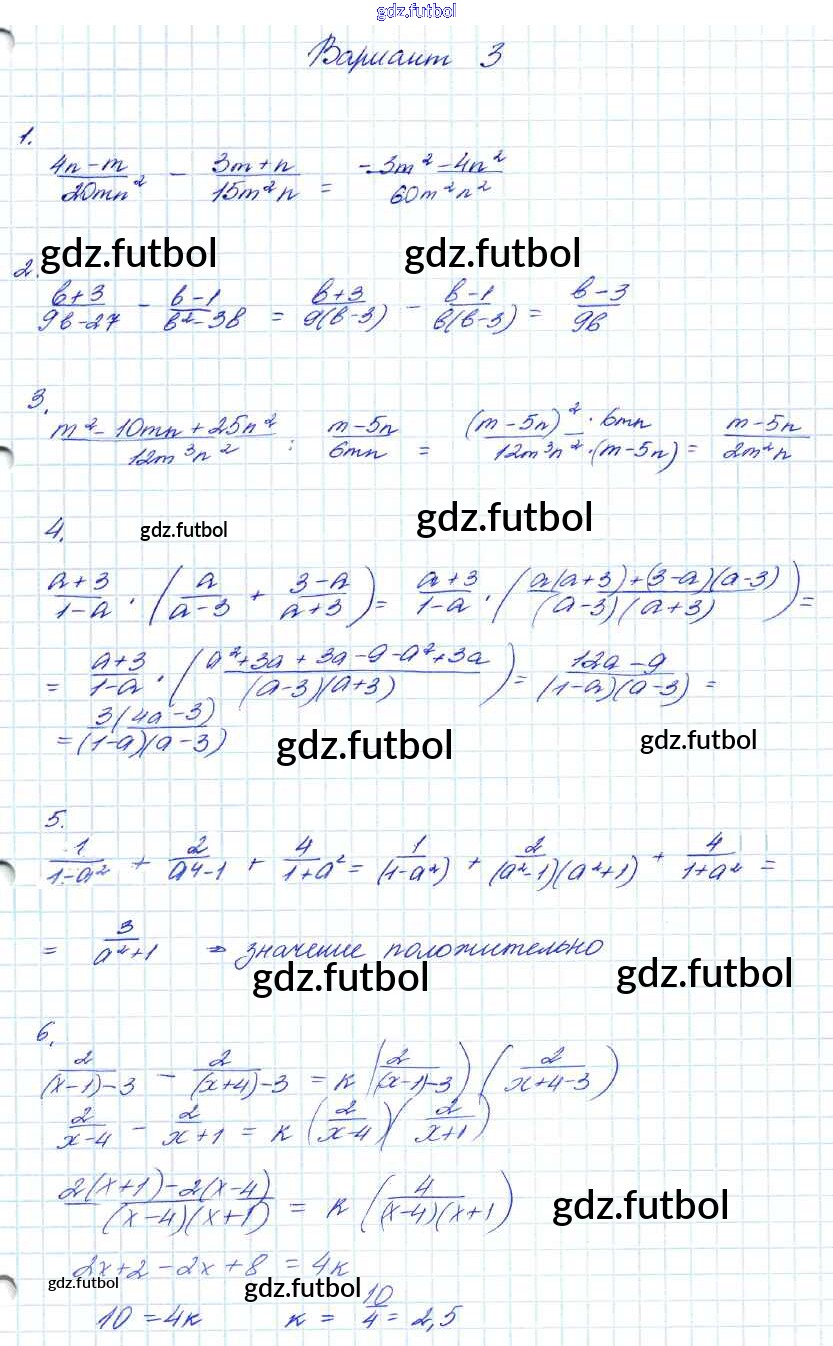 gdz.futbol
Вариант 3
1.
(4n-m)/(20mn²) - (3m+n)/(15m²n) = (-3m²-4n²)/(60m²n²)
gdz.futbol gdz.futbol
2.
(b+3)/(9b-27) - (b-1)/(b²-3b) = (b+3)/(9(b-3)) - (b-1)/(b(b-3)) = (b-3)/(9b)
3.
(m²-10mn+25n²)/(12m³n²) : (m-5n)/(6mn) = ((m-5n)²·6mn)/(12m³n²·(m-5n)) = (m-5n)/(2m²n)
4. gdz.futbol gdz.futbol
(a+3)/(1-a) · (a/(a-3) + (3-a)/(a+3)) = (a+3)/(1-a) · ((a(a+3)+(3-a)(a-3))/((a-3)(a+3))) =
= (a+3)/(1-a) · ((a²+3a+3a-9-a²+3a)/((a-3)(a+3))) = (12a-9)/((1-a)(a-3)) =
= (3(4a-3))/((1-a)(a-3))
gdz.futbol gdz.futbol
5.
1/(1-a²) + 2/(a⁴-1) + 4/(1+a²) = 1/(1-a²) + 2/((a²-1)(a²+1)) + 4/(1+a²) =
= 3/(a²+1) ⇒ значение положительно
gdz.futbol gdz.futbol
6.
2/((x-1)-3) - 2/((x+4)-3) = к (2/((x-1)-3)) (2/(x+4-3))
2/(x-4) - 2/(x+1) = к (2/(x-4))(2/(x+1))
(2(x+1)-2(x-4))/((x-4)(x+1)) = к (4/((x-4)(x+1)))
gdz.futbol
2x+2-2x+8 = 4к
gdz.futbol gdz.futbol
10 = 4к к = 10/4 = 2,5